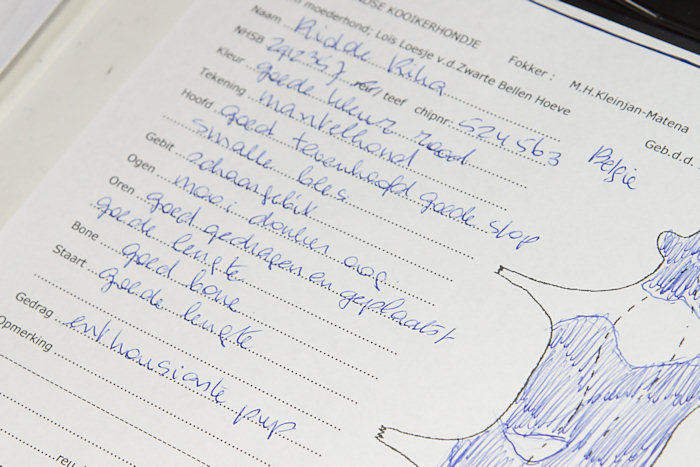 NDSE KOOIKERHONDJE
moederhond; Loïs Loesje v.d.Zwarte Bellen Hoeve
Fokker : M.H.Kleinjan-Matena
Naam Ridde Riha
Geb.d.d.
NHSB 292367 reu/ teef chipnr. 524563 Belgie
Kleur goede kleur rood
Tekening mantelhond
Hoofd goed tevenhoofd goede stop
smalle bles
Gebit schaargebit
Ogen mooi donker oog
Oren goed gedragen en geplaatst
goede lengte
Bone goed bone
Staart goede lengte
Gedrag enthousiaste pup
Opmerking
reu